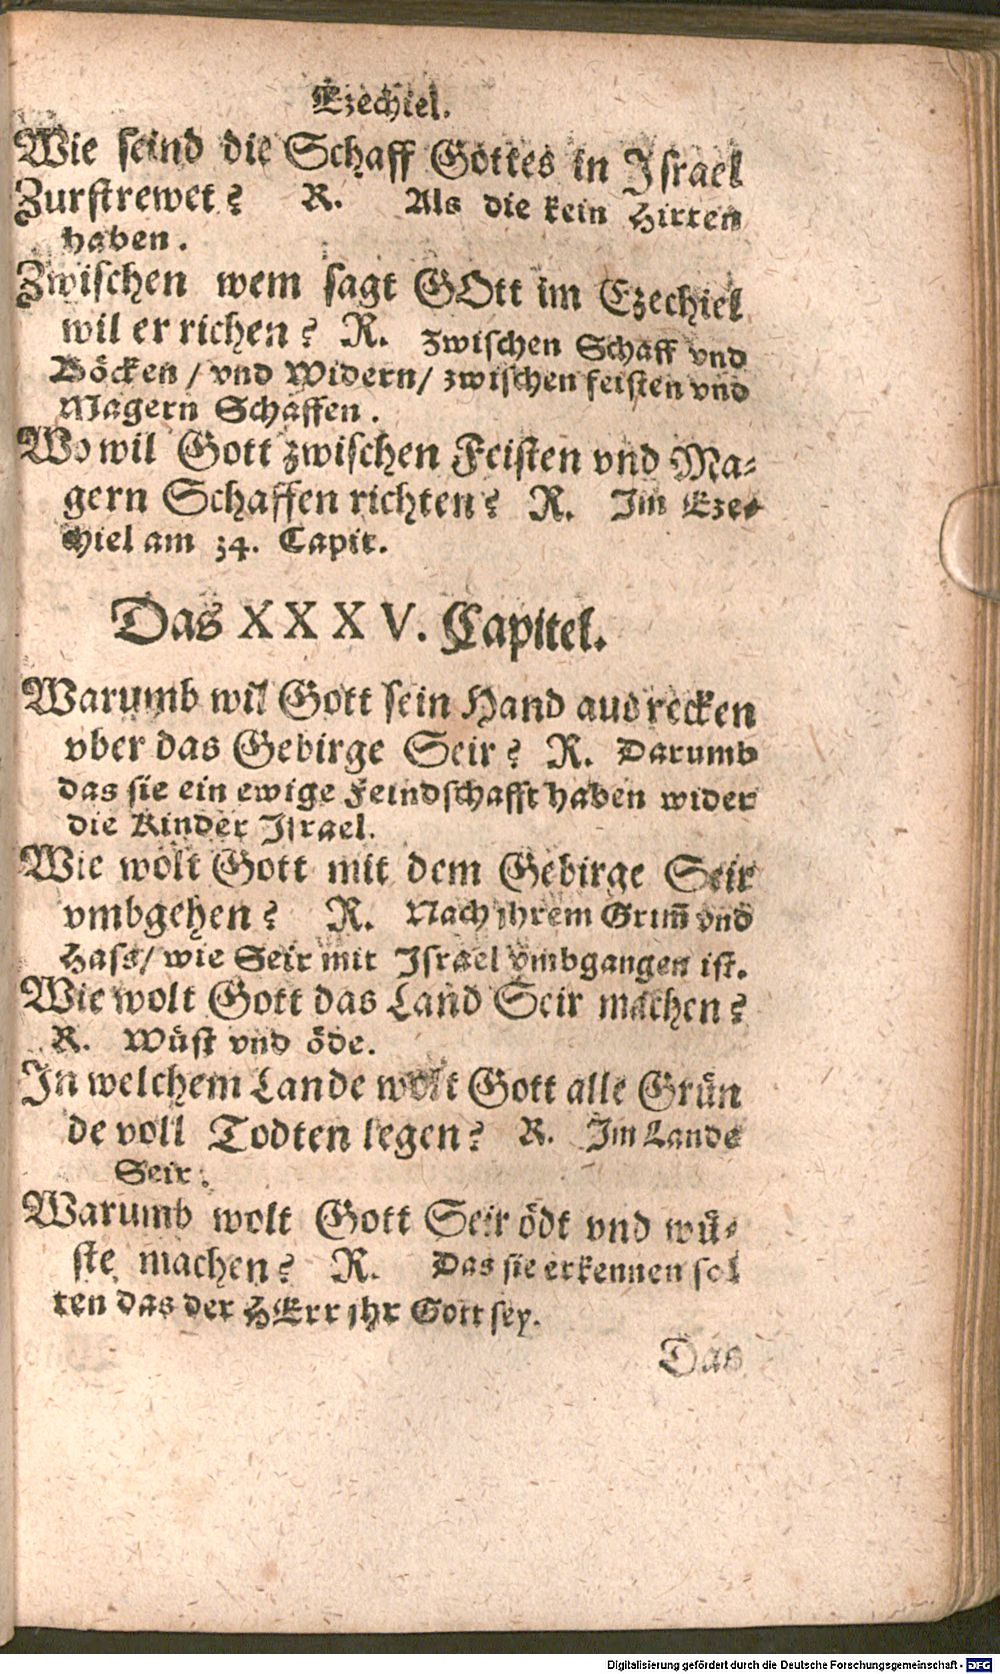 Ezechiel.
Wie seind die Schaff Gottes in Israel
Zurstrewet? R. Als die kein Hirten
haben.
Zwischen wem sagt GOtt im Ezechiel
wil er richen? R. Zwischen Schaff vnd
Böcken / vnd Widern / zwischen feisten vnd
Magern Schaffen.
Wo wil Gott zwischen Feisten vnd Ma-
gern Schaffen richten? R. Im Eze-
chiel am 34. Capit.
Das XXXV. Capitel.
Warumb wil Gott sein Hand ausrecken
vber das Gebirge Seir? R. Darumb
das sie ein ewige Feindschafft haben wider
die Kinder Israel.
Wie wolt Gott mit dem Gebirge Seir
vmbgehen? R. Nach jhrem Grim̃ vnd
Hass / wie Seir mit Israel vmbgangen ist.
Wie wolt Gott das Land Seir machen?
R. Wüst vnd öde.
In welchem Lande wolt Gott alle Grün
de voll Todten legen? R. Im Lande
Seir.
Warumb wolt Gott Seir ödt vnd wü-
ste machen? R. Das sie erkennen sol
ten das der HErr jhr Gott sey.
Das
Digitalisierung gefördert durch die Deutsche Forschungsgemeinschaft - DFG